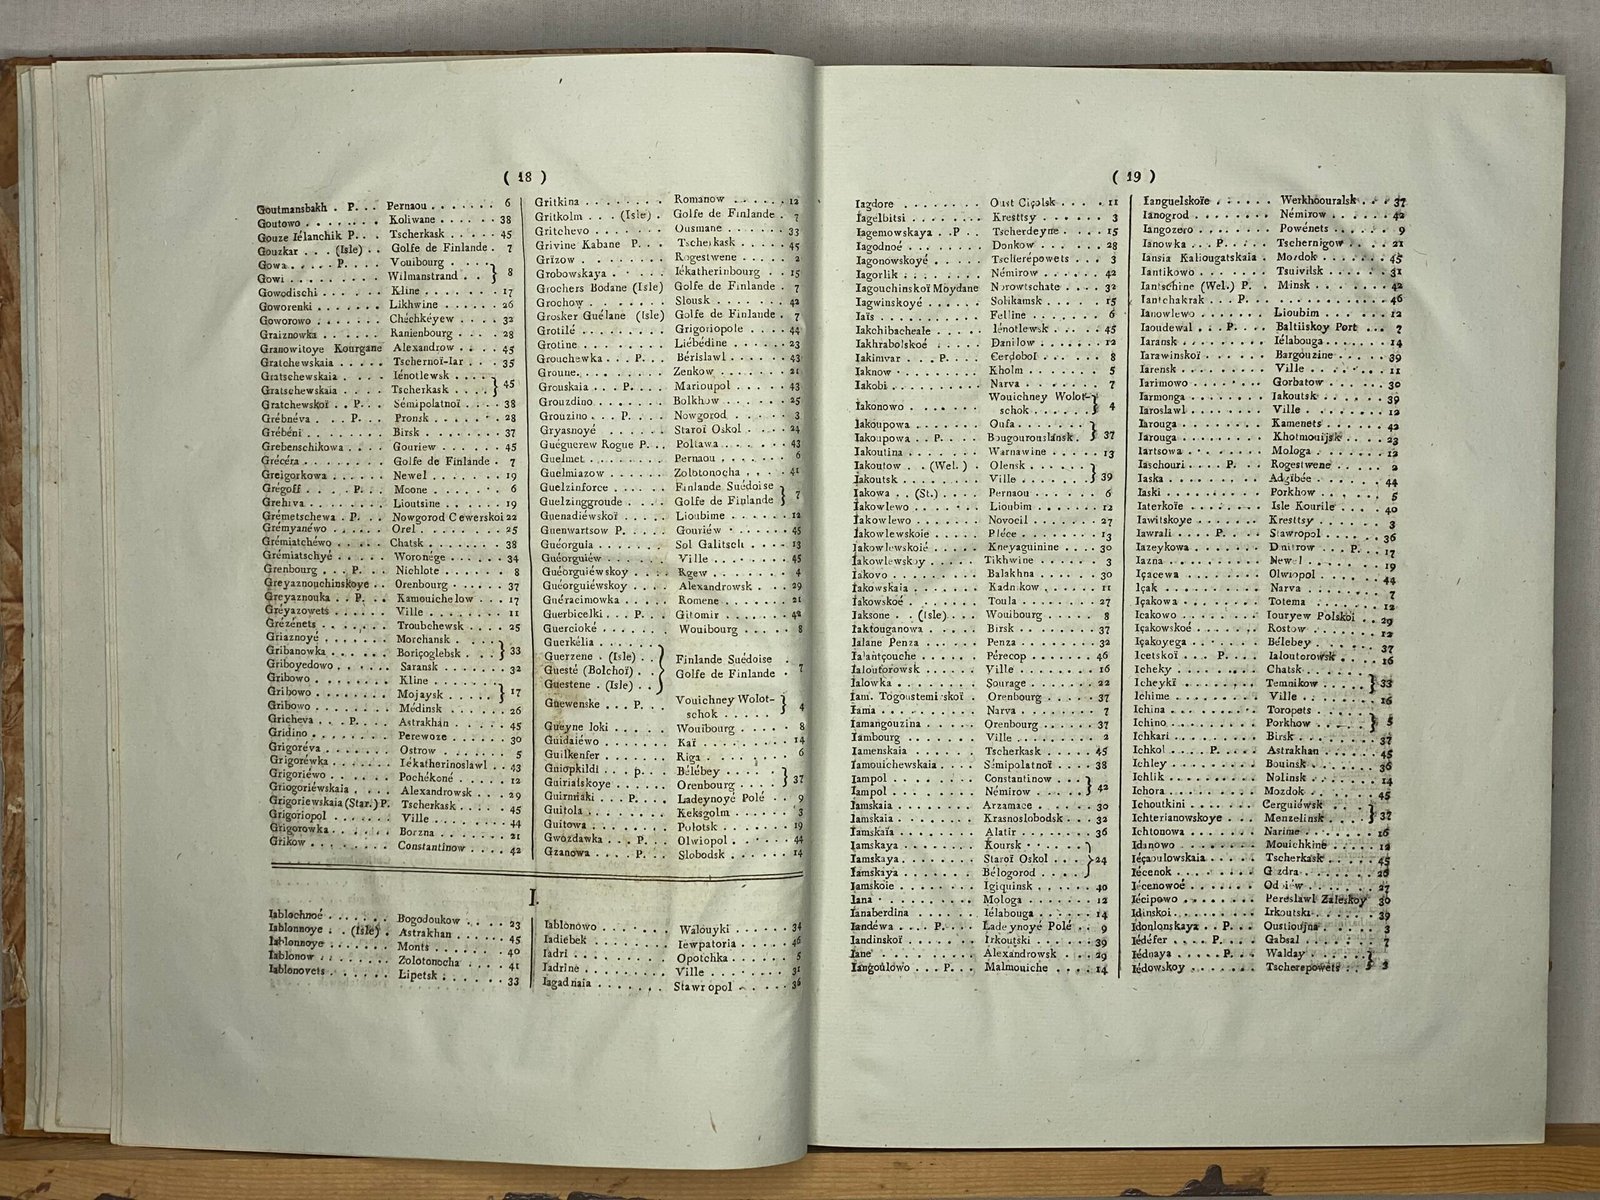 ( 18 )
Goutmansbakh . P. . . Pernaou . . . . . . . 6
Goutowo . . . . . . . Koliwane . . . . . . 38
Gouze Iélanchik P. . . Tscherkask . . . . . 45
Gouzkar . . (Isle) . . Golfe de Finlande . 7
Gowa . . . . . P. . . . Vouibourg . . . . } 8
Gowi . . . . . . . . . Wilmanstrand . . }
Gowodischi . . . . . . Kline . . . . . . . 17
Goworenki . . . . . . Likhwine . . . . . . 26
Goworowo . . . . . . Chéchkéyew . . . . 32
Graiznowka . . . . . Ranienbourg . . . . 28
Granowitoye Kourgane Alexandrow . . . . 45
Gratchewskaia . . . . Tschernoï-Iar . . . . 35
Gratschewskaia . . . . Iénotlewsk . . . . } 45
Gratschewskaia . . . . Tscherkask . . . . }
Gratchewskoï . . P. . . Sémipolatnoï . . . . 38
Grébnéva . . . P. . . Pronsk . . . . . . . 28
Grébéni . . . . . . . Birsk . . . . . . . . 37
Grebenschikowa . . . . Gouriew . . . . . . 45
Grécéra . . . . . . . Golfe de Finlande . 7
Greigorkowa . . . . . Newel . . . . . . . 19
Grégoff . . . . P. . . Moone . . . . . . . 6
Grehiva . . . . . . . Lioutsine . . . . . . 19
Grémetschewa . P. . . Nowgorod Cewerskoi 22
Grémyanéwo . . . . . Orel . . . . . . . . 25
Grémiatchéwo . . . . Chatsk . . . . . . . 38
Grémiatschyé . . . . . Woronége . . . . . 34
Grenbourg . . . P. . . Nichlote . . . . . . 8
Greyaznouchinskoye . . Orenbourg . . . . . 37
Greyaznouka . . P. . . Kamouichelow . . . 17
Gréyazowets . . . . . Ville . . . . . . . . 11
Grézénets . . . . . . Troubchewsk . . . . 25
Griaznoyé . . . . . . Morchansk . . . . } 33
Gribanowka . . . . . Boriçoglebsk . . . }
Griboyedowo . . . . . Saransk . . . . . . . 32
Gribowo . . . . . . . Kline . . . . . . . } 17
Gribowo . . . . . . . Mojaysk . . . . . }
Gribowo . . . . . . . Médinsk . . . . . . 26
Gricheva . . . P. . . Astrakhan . . . . . 45
Gridino . . . . . . . Perewoze . . . . . . 30
Grigoréva . . . . . . Ostrow . . . . . . . 5
Grigoréwka . . . . . Iékatherinoslawl . . 43
Grigoriéwo . . . . . . Pochékoné . . . . . 12
Griogoriéwskaia . . . . Alexandrowsk . . . . 29
Grigoriewskaia (Star.) P. Tscherkask . . . . . 45
Grigoriopol . . . . . . Ville . . . . . . . . 44
Grigorowka . . . . . . Borzna . . . . . . . 21
Grikow . . . . . . . Constantinow . . . . 42
Gritkina . . . . . . . Romanow . . . . . . 12
Gritkolm . . . (Isle) . Golfe de Finlande . 7
Gritchevo . . . . . . Ousmane . . . . . . 33
Grivine Kabane P. . . Tscherkask . . . . . 45
Grizow . . . . . . . Rogestwene . . . . . 2
Grobowskaya . . . . . Iékatherinbourg . . . 15
Grochers Bodane (Isle) Golfe de Finlande . 7
Grochow . . . . . . . Slousk . . . . . . . 42
Grosker Guélane (Isle) Golfe de Finlande . 7
Grotilé . . . . . . . Grigoriopole . . . . 44
Grotine . . . . . . . Liébédine . . . . . . 23
Grouchewka . . . P. . . Bérislawl . . . . . . 43
Groune. . . . . . . . Zenkow . . . . . . . 21
Grouskaia . . . P. . . Marioupol . . . . . 43
Grouzdino . . . . . . Bolkhow . . . . . . 25
Grouzino . . . P. . . Nowgorod . . . . . . 3
Gryasnoyé . . . . . . Staroï Oskol . . . . 24
Guéguerew Rogue P. . . Poltawa . . . . . . . 43
Guelmet . . . . . . . Pernaou . . . . . . . 6
Guelmiazow . . . . . Zolotonocha . . . . 41
Guelzinforce . . . . . Finlande Suédoise } 7
Guelzinggroude . . . . Golfe de Finlande }
Guenadiéwskoï . . . . Lioubime . . . . . . 12
Guenwartsow P. . . . Gouriéw . . . . . . 45
Guéorguia . . . . . . Sol Galitsch . . . . 13
Guéorguiéw . . . . . Ville . . . . . . . . 45
Guéorguiéwskoy . . . . Rgew . . . . . . . . 4
Guéorguiéwskoy . . . . Alexandrowsk . . . . 29
Guéracimowka . . . . Romene . . . . . . . 21
Guerbicelki . . . P. . . Gitomir . . . . . . . 42
Guercioké . . . . . . Wouibourg . . . . . 8
Guerkélia . . . . . .
Guerzene . (Isle) . . } Finlande Suédoise . 7
Gueste (Bolchoï) . . } Golfe de Finlande .
Guestene . (Isle) . . }
Guewenske . . . P. . . Vouichney Wolot- } 4
schok . . . . . }
Gueyne Ioki . . . . . Wouibourg . . . . . 8
Guidaiéwo . . . . . . Kaï . . . . . . . . 14
Guilkenfer . . . . . . Riga . . . . . . . . 6
Guiopkildi . . . p. . . Bélébey . . . . . } 37
Guirialskoye . . . . . Orenbourg . . . . }
Guirmiaki . . . P. . . Ladeynoyé Polé . . 9
Guitola . . . . . . . Keksgolm . . . . . . 3
Guitowa . . . . . . . Polotsk . . . . . . . 19
Gwozdawka . . . P. . . Olwiopol . . . . . . 44
Gzanowa . . . . P. . . Slobodsk . . . . . . 14
I.
Iablochnoé . . . . . . Bogodoukow . . . . 23
Iablonnoye . (Isle) . Astrakhan . . . . . 45
Iablonnoye . . . . . . Monts . . . . . . . 40
Iablonow . . . . . . . Zolotonocha . . . . 41
Iablonovets . . . . . . Lipetsk . . . . . . . 33
Iablonowo . . . . . . Walouyki . . . . . . 34
Iadiebek . . . . . . . Iewpatoria . . . . . 46
Iadri . . . . . . . . Opotchka . . . . . . 5
Iadrine . . . . . . . Ville . . . . . . . . 31
Iagadnaïa . . . . . . Stawropol . . . . . . 36
( 19 )
Iagdore . . . . . . . Oust Ciçolsk . . . . 11
Iagelbitsi . . . . . . Kresttsy . . . . . . 3
Iagemowskaya . . P . . Tscherdeyne . . . . 15
Iagodnoé . . . . . . . Donkow . . . . . . . 28
Iagonowskoyé . . . . . Tscherépowets . . . 3
Iagorlik . . . . . . . Némirow . . . . . . 42
Iagouchinskoï Moydane Norowtschate . . . . 32
Iagwinskoyé . . . . . Solikamsk . . . . . 15
Iaïs . . . . . . . . . Felline . . . . . . . 6
Iakchibacheale . . . . Iénotlewsk . . . . . 45
Iakhrabolskoé . . . . Danilow . . . . . . 12
Iakimvar . . . P. . . Cerdobol . . . . . . 8
Iaknow . . . . . . . Kholm . . . . . . . 5
Iakobi . . . . . . . . Narva . . . . . . . 7
Iakonowo . . . . . . Wouichney Wolot- } 4
schok . . . . . }
Iakoupowa . . . . . . Oufa . . . . . . } 37
Iakoupowa . . P. . . . Bougourouslansk . }
Iakoutina . . . . . . Warnawine . . . . . 13
Iakoutow . . (Wel.) . Olensk . . . . . } 39
Iakoutsk . . . . . . . Ville . . . . . . }
Iakowa . . (St.) . . . Pernaou . . . . . . 6
Iakowlewo . . . . . . Lioubim . . . . . . 12
Iakowlewo . . . . . . Novocil . . . . . . . 27
Iakowlewskoie . . . . Pléce . . . . . . . . 13
Iakowlewskoié . . . . Kneyaguinine . . . . 30
Iakowlewskoy . . . . . Tikhwine . . . . . . 3
Iakovo . . . . . . . . Balakhna . . . . . . 30
Iakowskaia . . . . . . Kadnikow . . . . . . 11
Iakowskoé . . . . . . Toula . . . . . . . . 27
Iaksone . . (Isle) . . Wouibourg . . . . . 8
Iaktouganowa . . . . . Birsk . . . . . . . . 37
Ialane Penza . . . . . Penza . . . . . . . . 32
Ialantçouche . . . . . Pérecop . . . . . . . 46
Ialoutorowsk . . . . . Ville . . . . . . . . 16
Ialowka . . . . . . . Sourage . . . . . . . 22
Iam. Togoustemirskoï . Orenbourg . . . . . 37
Iama . . . . . . . . . Narva . . . . . . . . 7
Iamangouzina . . . . . Orenbourg . . . . . 37
Iambourg . . . . . . . Ville . . . . . . . . 2
Iamenskaia . . . . . . Tscherkask . . . . . 45
Iamouichewskaia . . . Sémipolatnoï . . . . 38
Iampol . . . . . . . . Constantinow . . } 42
Iampol . . . . . . . . Némirow . . . . }
Iamskaia . . . . . . . Arzamace . . . . . . 30
Iamskaia . . . . . . . Krasnoslobodsk . . . 32
Iamskaïa . . . . . . . Alatir . . . . . . . . 36
Iamskaya . . . . . . . Koursk . . . . . }
Iamskaya . . . . . . . Staroï Oskol . . . } 24
Iamskaya . . . . . . . Bélogorod . . . . }
Iamskoie . . . . . . . Igiquinsk . . . . . . 40
Iana . . . . . . . . . Mologa . . . . . . . 12
Ianaberdina . . . . . . Iélabouga . . . . . . 14
Iandéwa . . . P. . . . Ladeynoyé Polé . . 9
Iandinskoï . . . . . . Irkoutski . . . . . . 39
Iane . . . . . . . . . Alexandrowsk . . . . 29
Iangoulowo . . P. . . Malmouiche . . . . . 14
Ianguelskoïe . . . . . Werkhoouralsk . . . 37
Ianogrod . . . . . . . Némirow . . . . . . 42
Iangozero . . . . . . Powénets . . . . . . 9
Ianowka . . . P. . . . Tschernigow . . . . 21
Iansia Kaliougatskaia . Mozdok . . . . . . . 45
Iantikowo . . . . . . Tsuivilsk . . . . . . 31
Iantschine (Wel.) P. . Minsk . . . . . . . 42
Iantchakrak . . P. . . . . . . . . . . . 46
Ianowlewo . . . . . . Lioubim . . . . . . 12
Iaoudewal . . . P. . . Baltiiskoy Port . . . 7
Iaransk . . . . . . . Iélabouga . . . . . . 14
Iarawinskoï . . . . . Bargouzine . . . . . 39
Iarensk . . . . . . . Ville . . . . . . . . 11
Iarimowo . . . . . . . Gorbatow . . . . . . 30
Iarmonga . . . . . . . Iakoutsk . . . . . . 39
Iaroslawl . . . . . . Ville . . . . . . . . 12
Iarouga . . . . . . . Kamenets . . . . . . 42
Iarouga . . . . . . . Khotmouijsk . . . . 23
Iartsowa . . . . . . . Mologa . . . . . . . 12
Iaschouri . . . P. . . Rogestwene . . . . . 2
Iaska . . . . . . . . Adgibée . . . . . . . 44
Iaski . . . . . . . . Porkhow . . . . . . 5
Iaterkoïe . . . . . . Isle Kourile . . . . . 40
Iawitskoye . . . . . . Kresttsy . . . . . . 3
Iawrali . . . . P. . . Stawropol . . . . . . 36
Iazeykowa . . . . . . Dmitrow . . . P. . . 17
Iazna . . . . . . . . Newel . . . . . . . . 19
Içacewa . . . . . . . Olwiopol . . . . . . 44
Içak . . . . . . . . . Narva . . . . . . . . 7
Içakowa . . . . . . . Totema . . . . . . . 12
Icakowo . . . . . . . Iouryew Polskoï . . 29
Içakowskoé . . . . . . Rostow . . . . . . . 12
Içakoyega . . . . . . Bélebey . . . . . . . 37
Icetskoï . . . P. . . Ialoutorowsk . . . . 16
Icheky . . . . . . . . Chatsk . . . . . } 33
Icheykï . . . . . . . Temnikow . . . . }
Ichime . . . . . . . . Ville . . . . . . . . 16
Ichina . . . . . . . . Toropets . . . . } 5
Ichino . . . . . . . . Porkhow . . . . }
Ichkari . . . . . . . Birsk . . . . . . . . 37
Ichkol . . . . P. . . Astrakhan . . . . . 45
Ichley . . . . . . . . Bouinsk . . . . . . . 36
Ichlik . . . . . . . . Nolinsk . . . . . . . 14
Ichora . . . . . . . . Mozdok . . . . . . . 45
Ichoutkini . . . . . . Cerguiéwsk . . . } 37
Ichterianowskoye . . . Menzelinsk . . . }
Ichtonowa . . . . . . Narime . . . . . . . 16
Idanowo . . . . . . . Mouichkine . . . . . 12
Iéçaoulowskaia . . . . Tscherkask . . . . . 45
Iécenok . . . . . . . Gizdra . . . . . . . 26
Iécenowoé . . . . . . Odoïew . . . . . . . 27
Iécipowo . . . . . . . Pereslawl Zaleskoy 30
Idinskoi . . . . . . . Irkoutski . . . . . . 39
Idonlonskaya . . P. . . Oustioujna . . . . . 3
Iédéfer . . . . P. . . Gabsal . . . . . . . 7
Iédnaya . . . . P. . . Walday . . . . . } 3
Iédowskoy . . . . . . Tscherepowets . . }